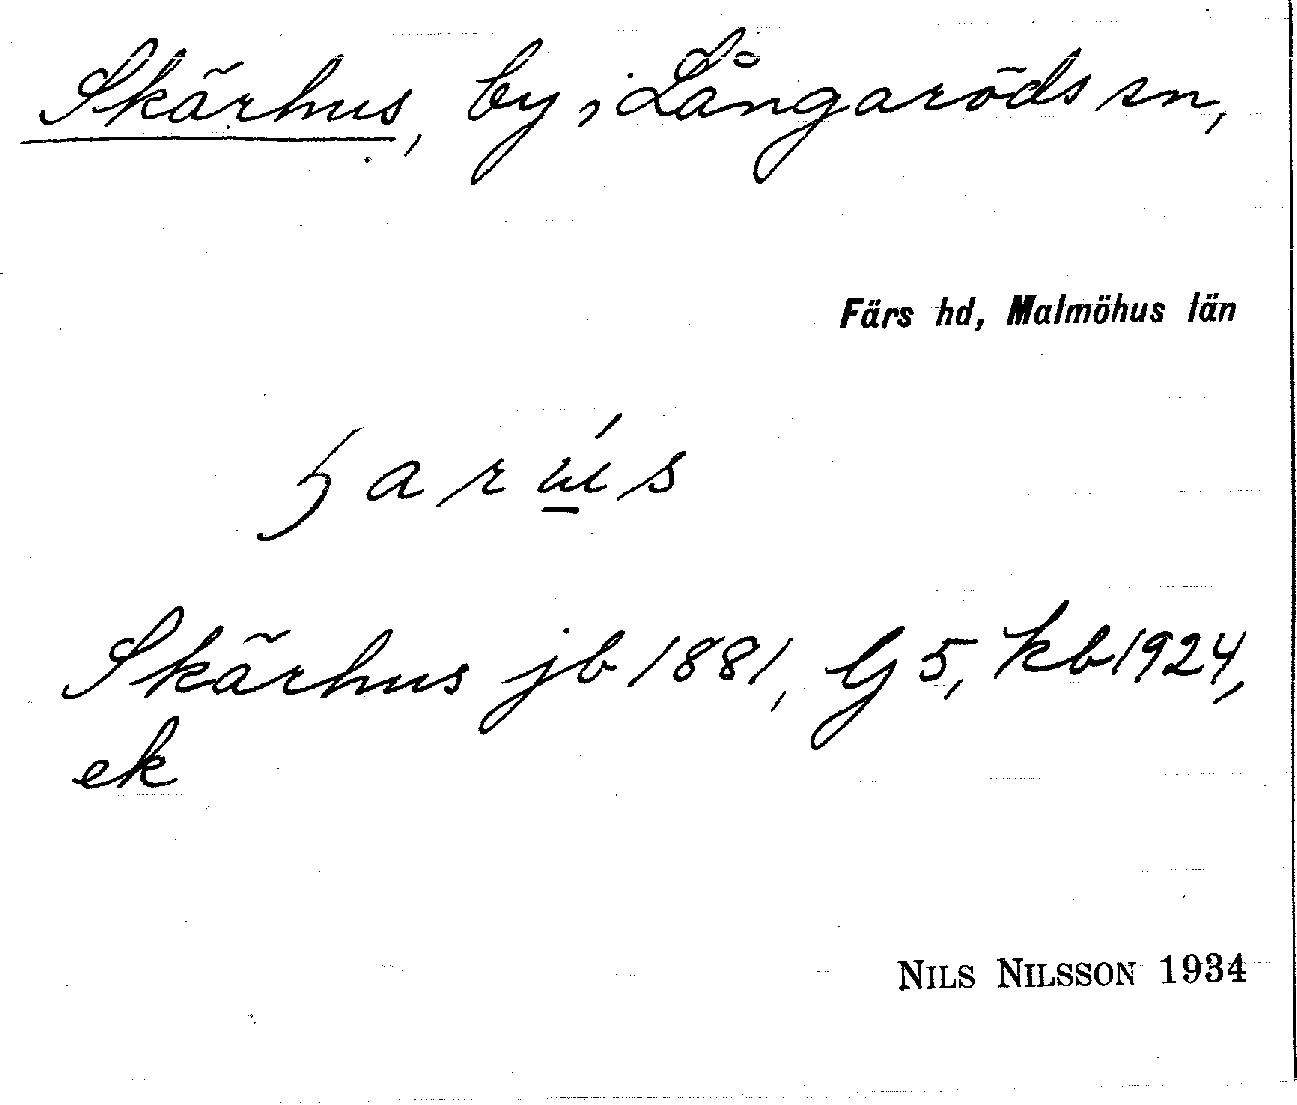 Skärhus, by i Långaröds sn,
Färs hd, Malmöhus län
Skärhus jb 1881, Gj 5, kb 1924,
ek
NILS NILSSON 1934